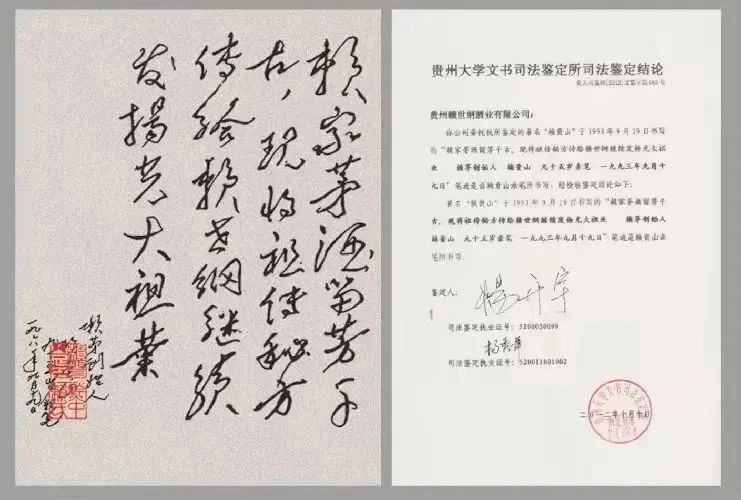 赖家茅酒留芳千
古，现将祖传秘方
传给赖世纲继续
发扬光大祖业
赖茅创始人
贵州大学文书司法鉴定所司法鉴定结论
贵州赖世纲酒业有限公司：
你公司委托我所鉴定的署名“赖贵山”于1993年9月19日书写
的“赖家茅酒留芳千古，现将祖传秘方传给赖世纲继续发杨光大祖
业 赖茅创始人 赖贵山 九十五岁亲笔 一九九三年九月十
九日”笔迹是否赖贵山亲笔所书写，经检验鉴定结论如下：
署名“赖贵山”于1993年9月19日书写的“赖家茅酒留芳千
古，现将祖传秘方传给赖世纲继续发杨光大祖业 赖茅创始人
赖贵山 九十五岁亲笔 一九九三年九月十九日”笔迹是赖贵山亲
笔所书写。
鉴定人：
司法鉴定执业证号：5200030099
司法鉴定执业证号：520011001002
二〇一二年十月十日